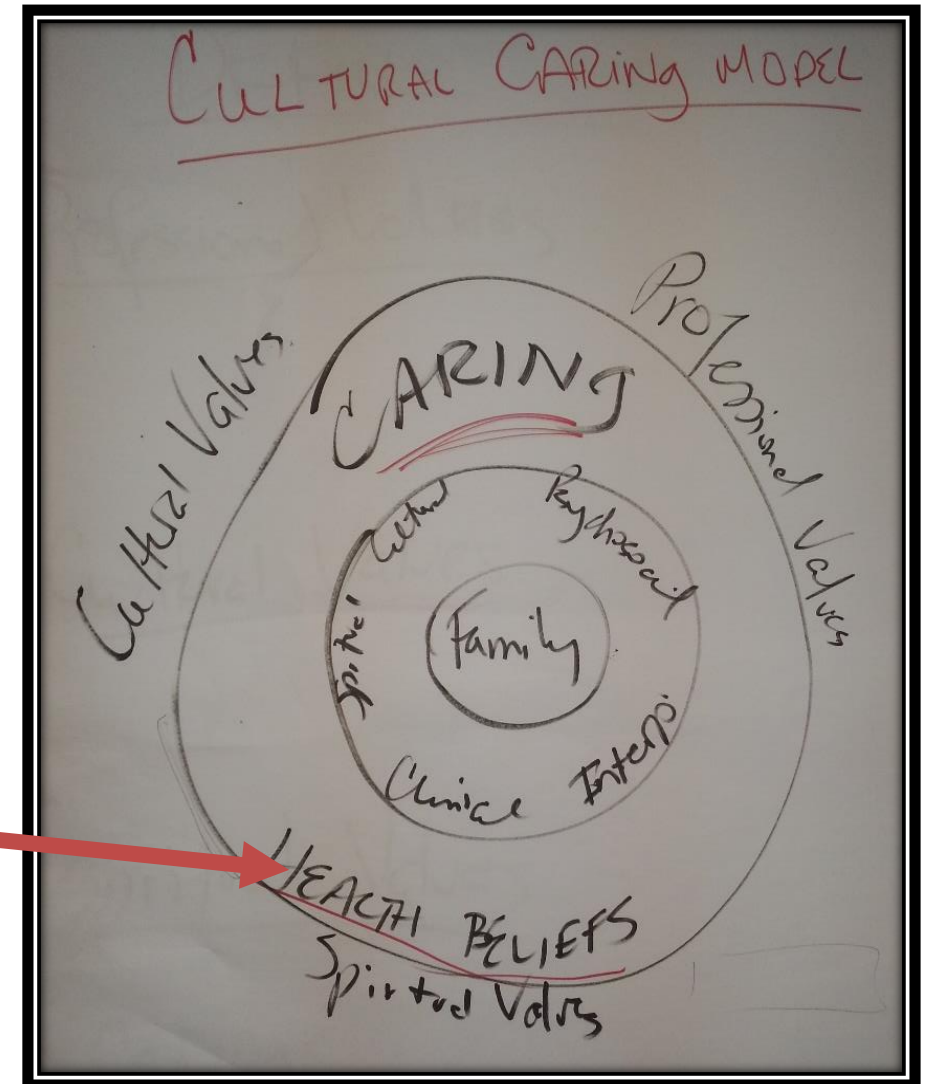 CULTURAL CARING MODEL
Cultural Values
Professional Values
CARING
Cultural
Psychosocail
Spiritual
Family
Clinical
HEALTH BELIEFS
Spiritual Values